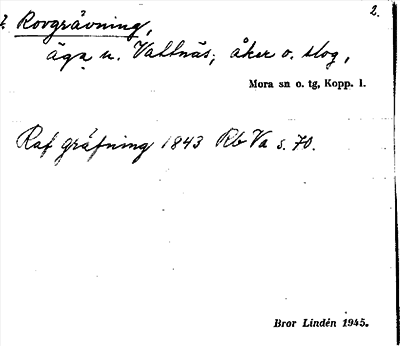 2.
? Rovgrävning,
äga u. Vattnäs; åker o. slog,
Mora sn o. tg, Kopp. l.
Raf gräfning 1843 Rb Va s. 70.
Bror Lindén 1945.